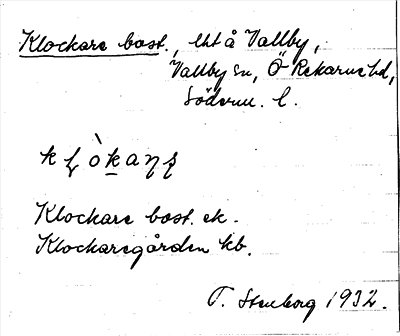 Klockare bost., lht å Vallby,
Vallby sn, Ö Rekarne hd,
Söderm. l.
Klockare bost. ek.
Klockaregården kb.
T. Stenborg 1932.